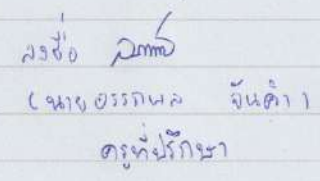 ลงชื่อ
(นายอรรถพล จันคำ)
ครูที่ปรึกษา